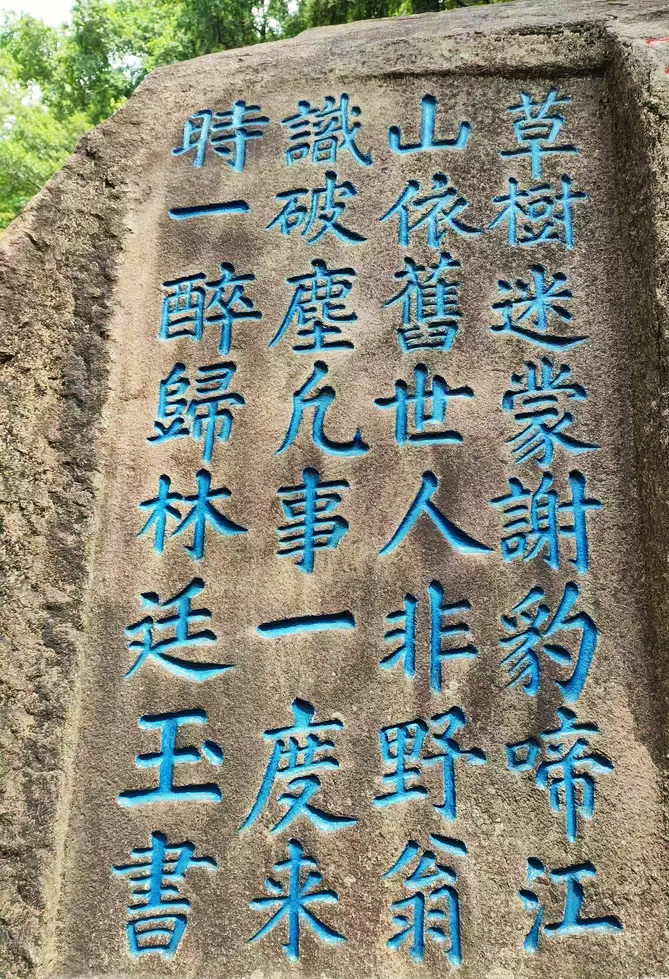 草樹迷蒙謝豹啼江
山依舊世人非野翁
識破塵凡事一度来
時一醉歸林廷玉書